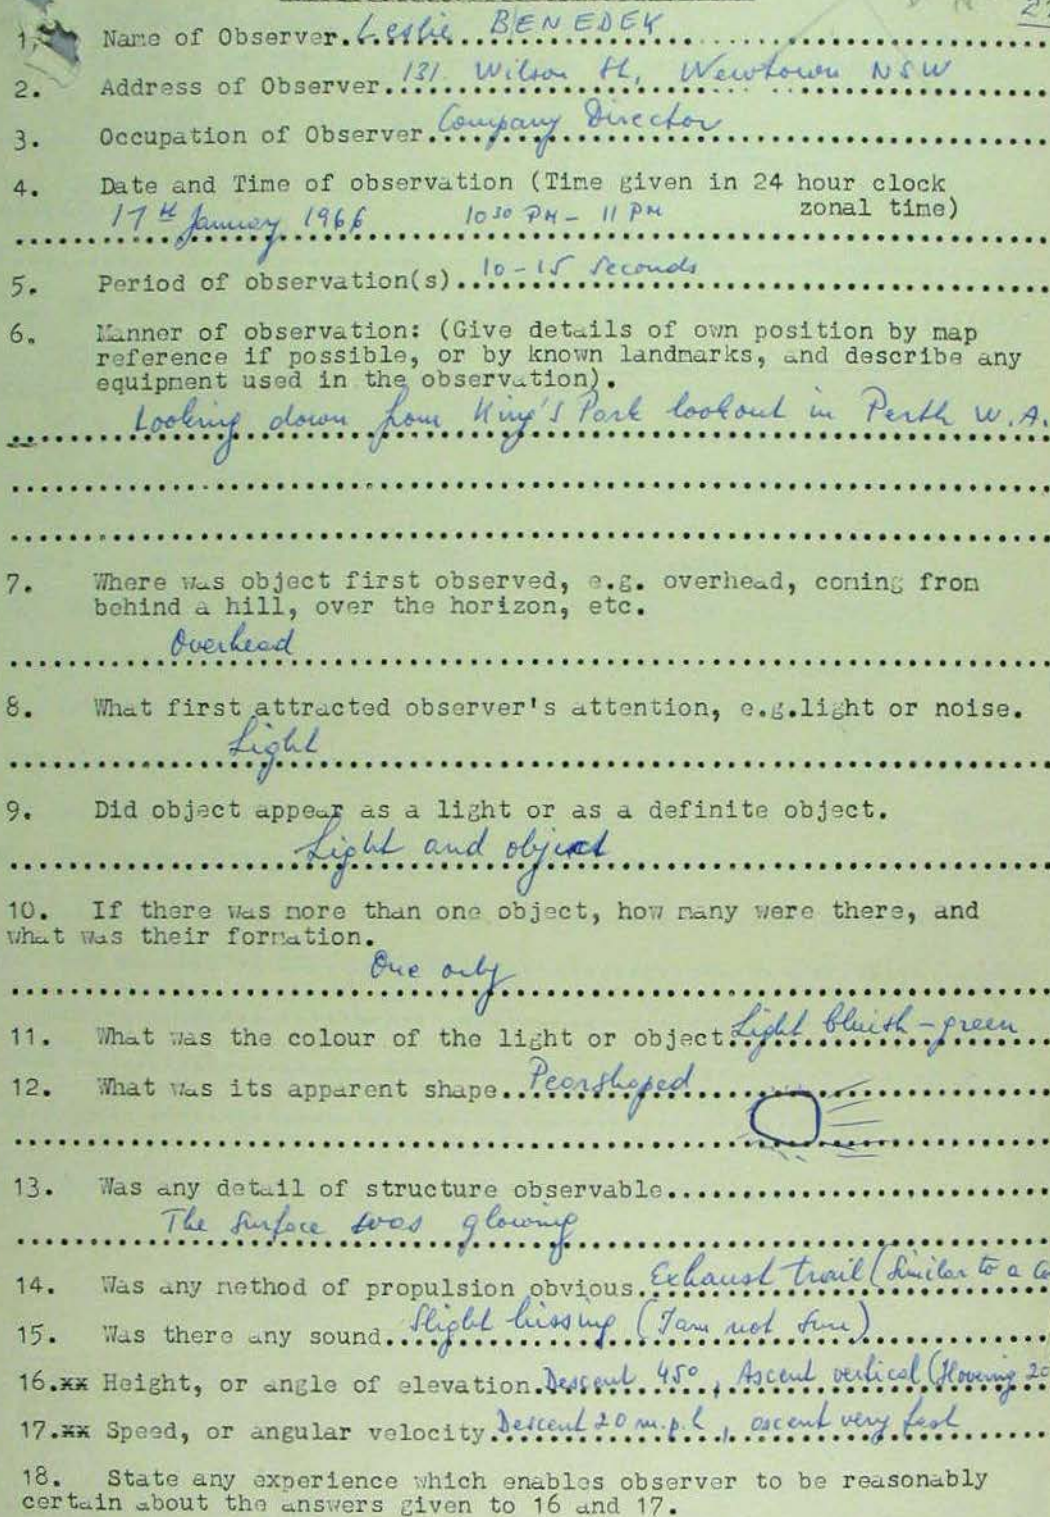 1. Name of Observer. Leslie BENEDEK
2. Address of Observer. 131 Wilson St, Newtown NSW
3. Occupation of Observer. Company Director
4. Date and Time of observation (Time given in 24 hour clock
zonal time)
17th January 1966 10 30 PM - 11 PM
5. Period of observation(s) 10-15 Seconds
6. Manner of observation: (Give details of own position by map
reference if possible, or by known landmarks, and describe any
equipment used in the observation).
Looking down from King's Park lookout in Perth W.A.
7. Where was object first observed, e.g. overhead, coming from
behind a hill, over the horizon, etc.
Overhead
8. What first attracted observer's attention, e.g.light or noise.
Light
9. Did object appear as a light or as a definite object.
Light and object
10. If there was more than one object, how many were there, and
what was their formation.
One only
11. What was the colour of the light or object Light bluish-green
12. What was its apparent shape.. Pearshaped
13. Was any detail of structure observable
The surface was glowing
14. Was any method of propulsion obvious.. Exhaust trail (Similar to a
15. Was there any sound.. Slight hissing (I am not sure)
16.xx Height, or angle of elevation. Descent 45°, Ascent vertical (Hovering 20
17.xx Speed, or angular velocity Descent 20 m.p.h, ascent very fast
18. State any experience which enables observer to be reasonably
certain about the answers given to 16 and 17.